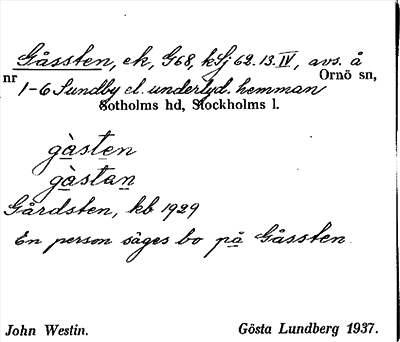 Gåssten, ek, G68, kSj 62.13.IV, avs. å
nr 1-6 Sundby el. underlyd. hemman Ornö sn,
Sotholms hd, Stockholms l.
gàsten
gàstan
Gårdsten, kb 1929
En person säges bo på Gåssten.
John Westin. Gösta Lundberg 1937.